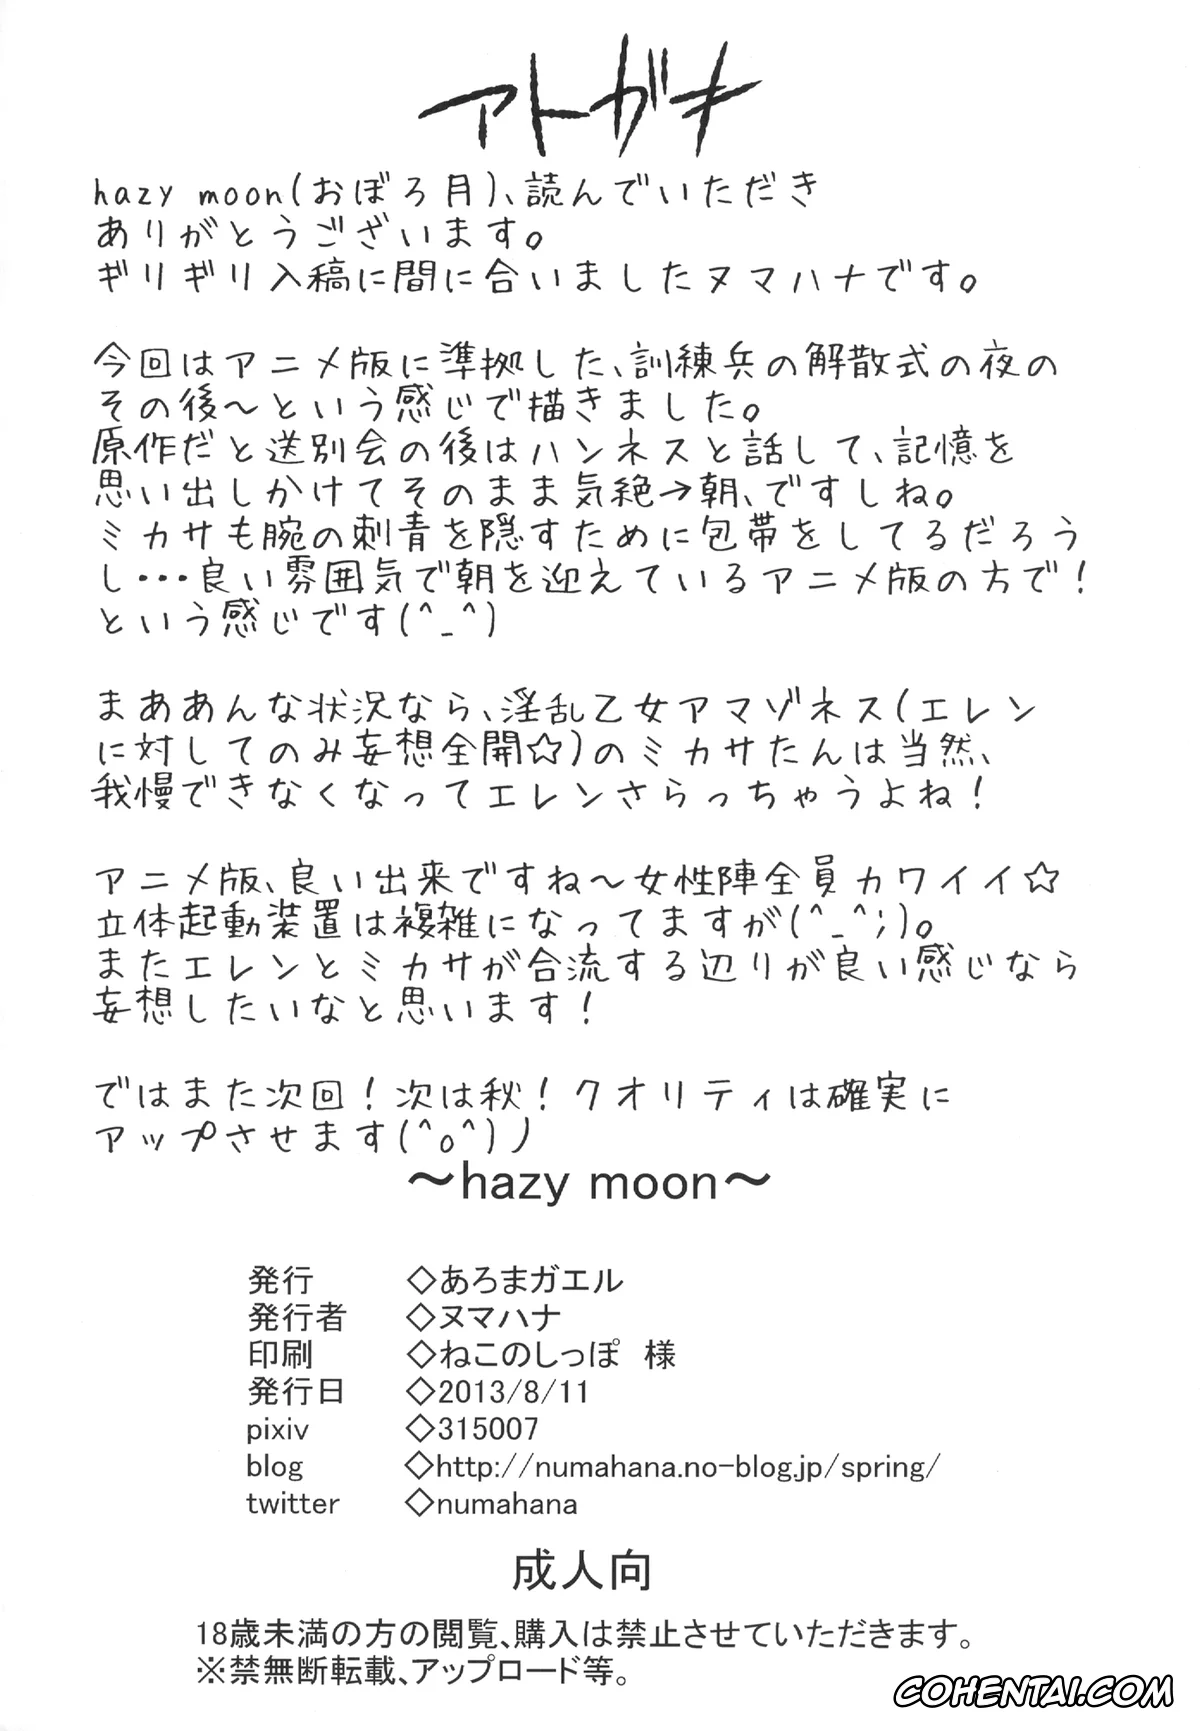 アトガキ
hazy moon(おぼろ月)、読んでいただき
ありがとうございます。
ギリギリ入稿に間に合いましたヌマハナです。
今回はアニメ版に準拠した、訓練兵の解散式の夜の
その後～という感じで描きました。
原作だと送別会の後はハンネスと話して、記憶を
思い出しかけてそのまま気絶→朝、ですしね。
ミカサも腕の刺青を隠すために包帯をしてるだろう
し・・・良い雰囲気で朝を迎えているアニメ版の方で！
という感じです(^_^)
まああんな状況なら、淫乱乙女アマゾネス(エレン
に対してのみ妄想全開☆)のミカサたんは当然、
我慢できなくなってエレンさらっちゃうよね！
アニメ版、良い出来ですね～女性陣全員カワイイ☆
立体起動装置は複雑になってますが(^_^;)。
またエレンとミカサが合流する辺りが良い感じなら
妄想したいなと思います！
ではまた次回！次は秋！クオリティは確実に
アップさせます(^o^)ノ
～hazy moon～
発行 ◇あろまガエル
発行者 ◇ヌマハナ
印刷 ◇ねこのしっぽ 様
発行日 ◇2013/8/11
pixiv ◇315007
blog ◇http://numahana.no-blog.jp/spring/
twitter ◇numahana
成人向
18歳未満の方の閲覧、購入は禁止させていただきます。
※禁無断転載、アップロード等。
COHENTAI.COM